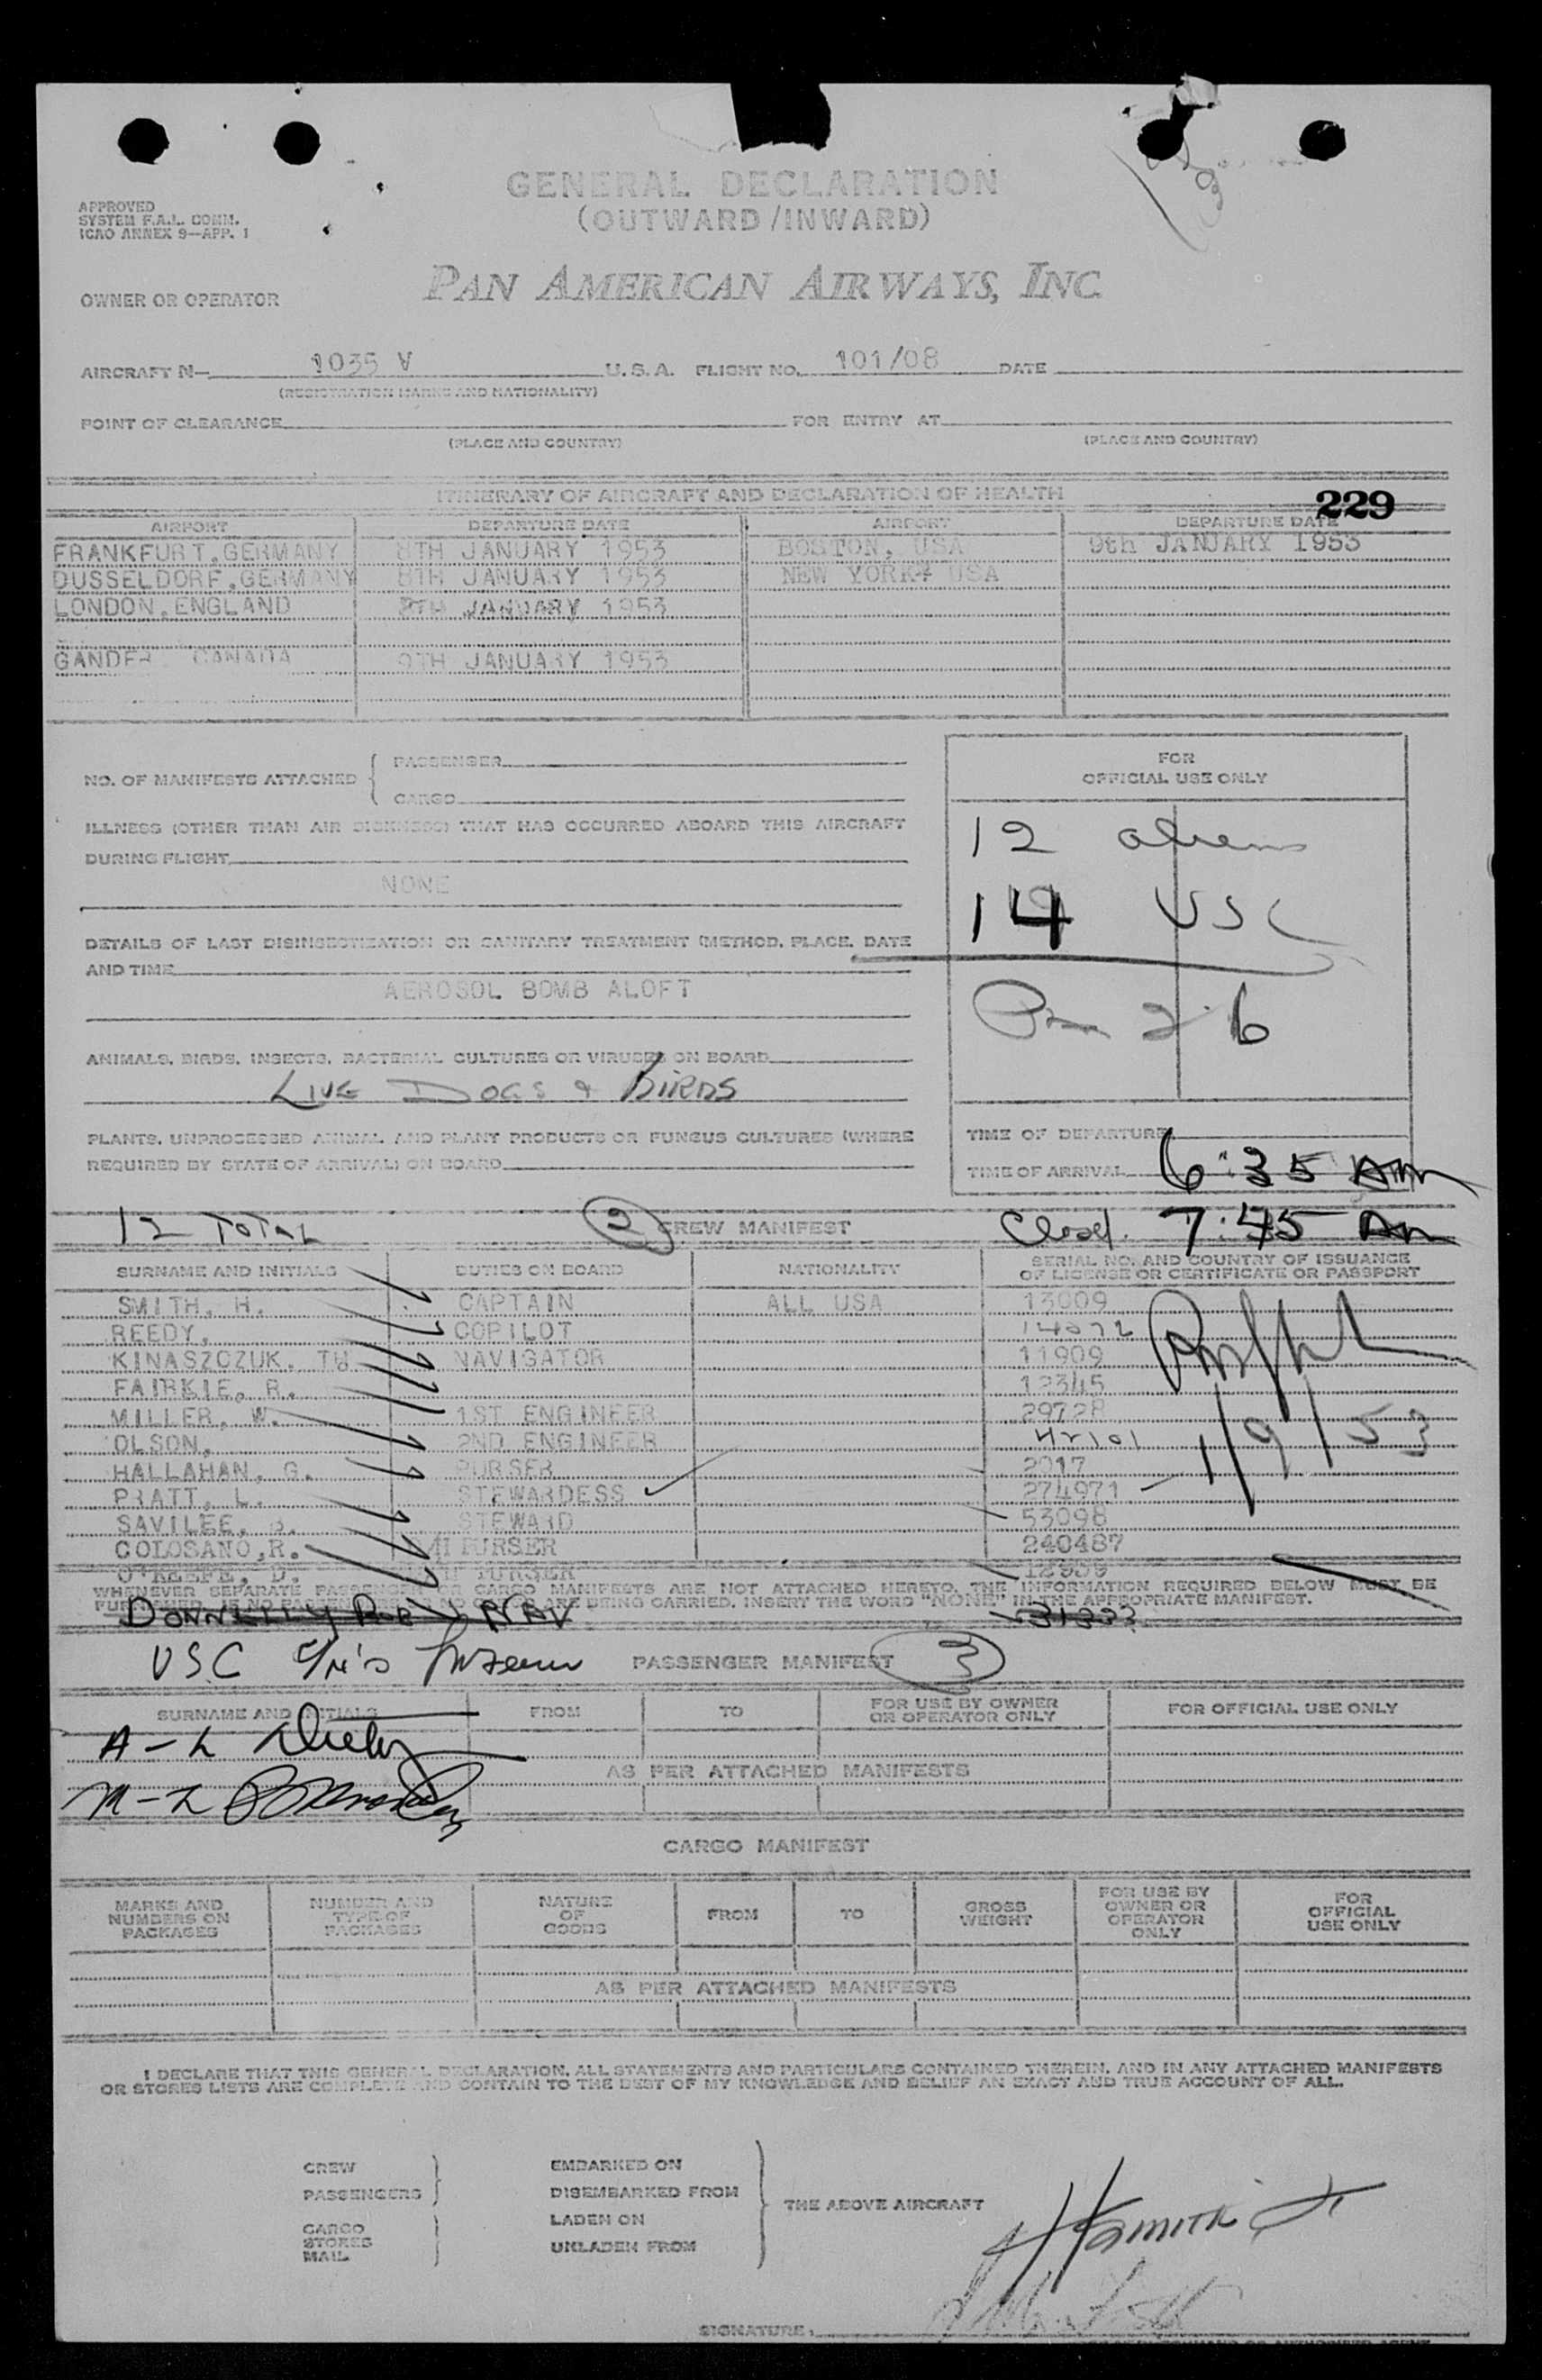 GENERAL DECLARATION
(OUTWARD/INWARD)
APPROVED
SYSTEM F.A.L. COMM.
ICAO ANNEX 9—APP. 1
OWNER OR OPERATOR
PAN AMERICAN AIRWAYS, INC.
AIRCRAFT N- 1035 V U.S.A. FLIGHT NO. 101/08 DATE
(REGISTRATION MARKS AND NATIONALITY)
POINT OF CLEARANCE FOR ENTRY AT
(PLACE AND COUNTRY) (PLACE AND COUNTRY)
ITINERARY OF AIRCRAFT AND DECLARATION OF HEALTH
229
AIRPORT DEPARTURE DATE AIRPORT DEPARTURE DATE
FRANKFURT,GERMANY 8TH JANUARY 1953 BOSTON, USA 9th JANUARY 1953
DUSSELDORF,GERMANY 8TH JANUARY 1953 NEW YORK, USA
LONDON,ENGLAND 8TH JANUARY 1953
GANDER CANADA 9TH JANUARY 1953
NO. OF MANIFESTS ATTACHED
PASSENGER
CARGO
FOR
OFFICIAL USE ONLY
ILLNESS (OTHER THAN AIR SICKNESS) THAT HAS OCCURRED ABOARD THIS AIRCRAFT
DURING FLIGHT
NONE
12 aliens
14 USC
26
DETAILS OF LAST DISINSECTIZATION OR SANITARY TREATMENT (METHOD, PLACE, DATE
AND TIME
AEROSOL BOMB ALOFT
ANIMALS, BIRDS, INSECTS, BACTERIAL CULTURES OR VIRUSES ON BOARD
LIVE DOGS & BIRDS
PLANTS, UNPROCESSED ANIMAL AND PLANT PRODUCTS OR FUNGUS CULTURES (WHERE
REQUIRED BY STATE OF ARRIVAL) ON BOARD
TIME OF DEPARTURE
TIME OF ARRIVAL 6:35 AM
12 TOTAL 2 CREW MANIFEST Closed. 7:45 Am
SURNAME AND INITIALS DUTIES ON BOARD NATIONALITY SERIAL NO. AND COUNTRY OF ISSUANCE
OF LICENSE OR CERTIFICATE OR PASSPORT
SMITH, H. CAPTAIN ALL USA 13009
REEDY, COPILOT
KINASZCZUK, TW NAVIGATOR 11909
FAIRKIE, R. 12345
MILLER, W. 1ST ENGINEER 29728
OLSON, 2ND ENGINEER 42101
HALLAHAN, G. PURSER 2017
PRATT, L. STEWARDESS 274971
SAVILEE, STEWARD 53098
COLOSANO,R. PURSER 240487
O'KEEFE, D. PURSER
1/9/53
WHENEVER SEPARATE PASSENGER OR CARGO MANIFESTS ARE NOT ATTACHED HERETO, THE INFORMATION REQUIRED BELOW MUST BE
FURNISHED. IF NO PASSENGERS OR NO CARGO ARE BEING CARRIED, INSERT THE WORD "NONE" IN THE APPROPRIATE MANIFEST.
DONNELLY NAV 31333
USC PASSENGER MANIFEST 3
SURNAME AND INITIALS FROM TO FOR USE BY OWNER
OR OPERATOR ONLY
FOR OFFICIAL USE ONLY
A-L
AS PER ATTACHED MANIFESTS
M-Z
CARGO MANIFEST
MARKS AND
NUMBERS ON
PACKAGES
NUMBER AND
TYPE OF
PACKAGES
NATURE
OF
GOODS
FROM
TO
GROSS
WEIGHT
FOR USE BY
OWNER OR
OPERATOR
ONLY
FOR
OFFICIAL
USE ONLY
AS PER ATTACHED MANIFESTS
I DECLARE THAT THIS GENERAL DECLARATION, ALL STATEMENTS AND PARTICULARS CONTAINED THEREIN, AND IN ANY ATTACHED MANIFESTS
OR STORES LISTS ARE COMPLETE AND CONTAIN TO THE BEST OF MY KNOWLEDGE AND BELIEF AN EXACT AND TRUE ACCOUNT OF ALL.
CREW
PASSENGERS
CARGO
STORES
MAIL
EMBARKED ON
DISEMBARKED FROM
LADEN ON
UNLADEN FROM
THE ABOVE AIRCRAFT
H Smith
SIGNATURE: